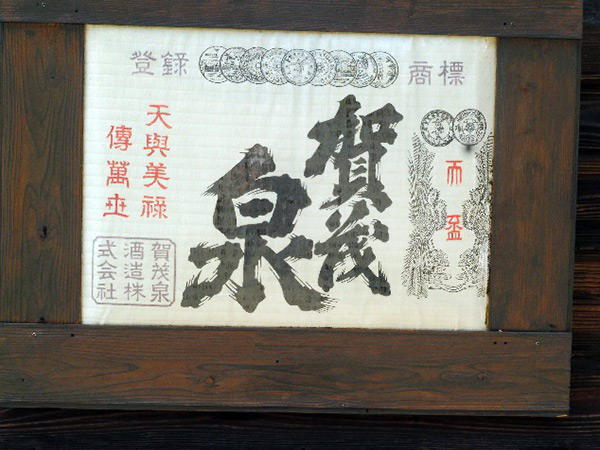 登録 商標
賀茂
泉
天與美禄
傳萬世
賀茂泉
酒造株
式会社